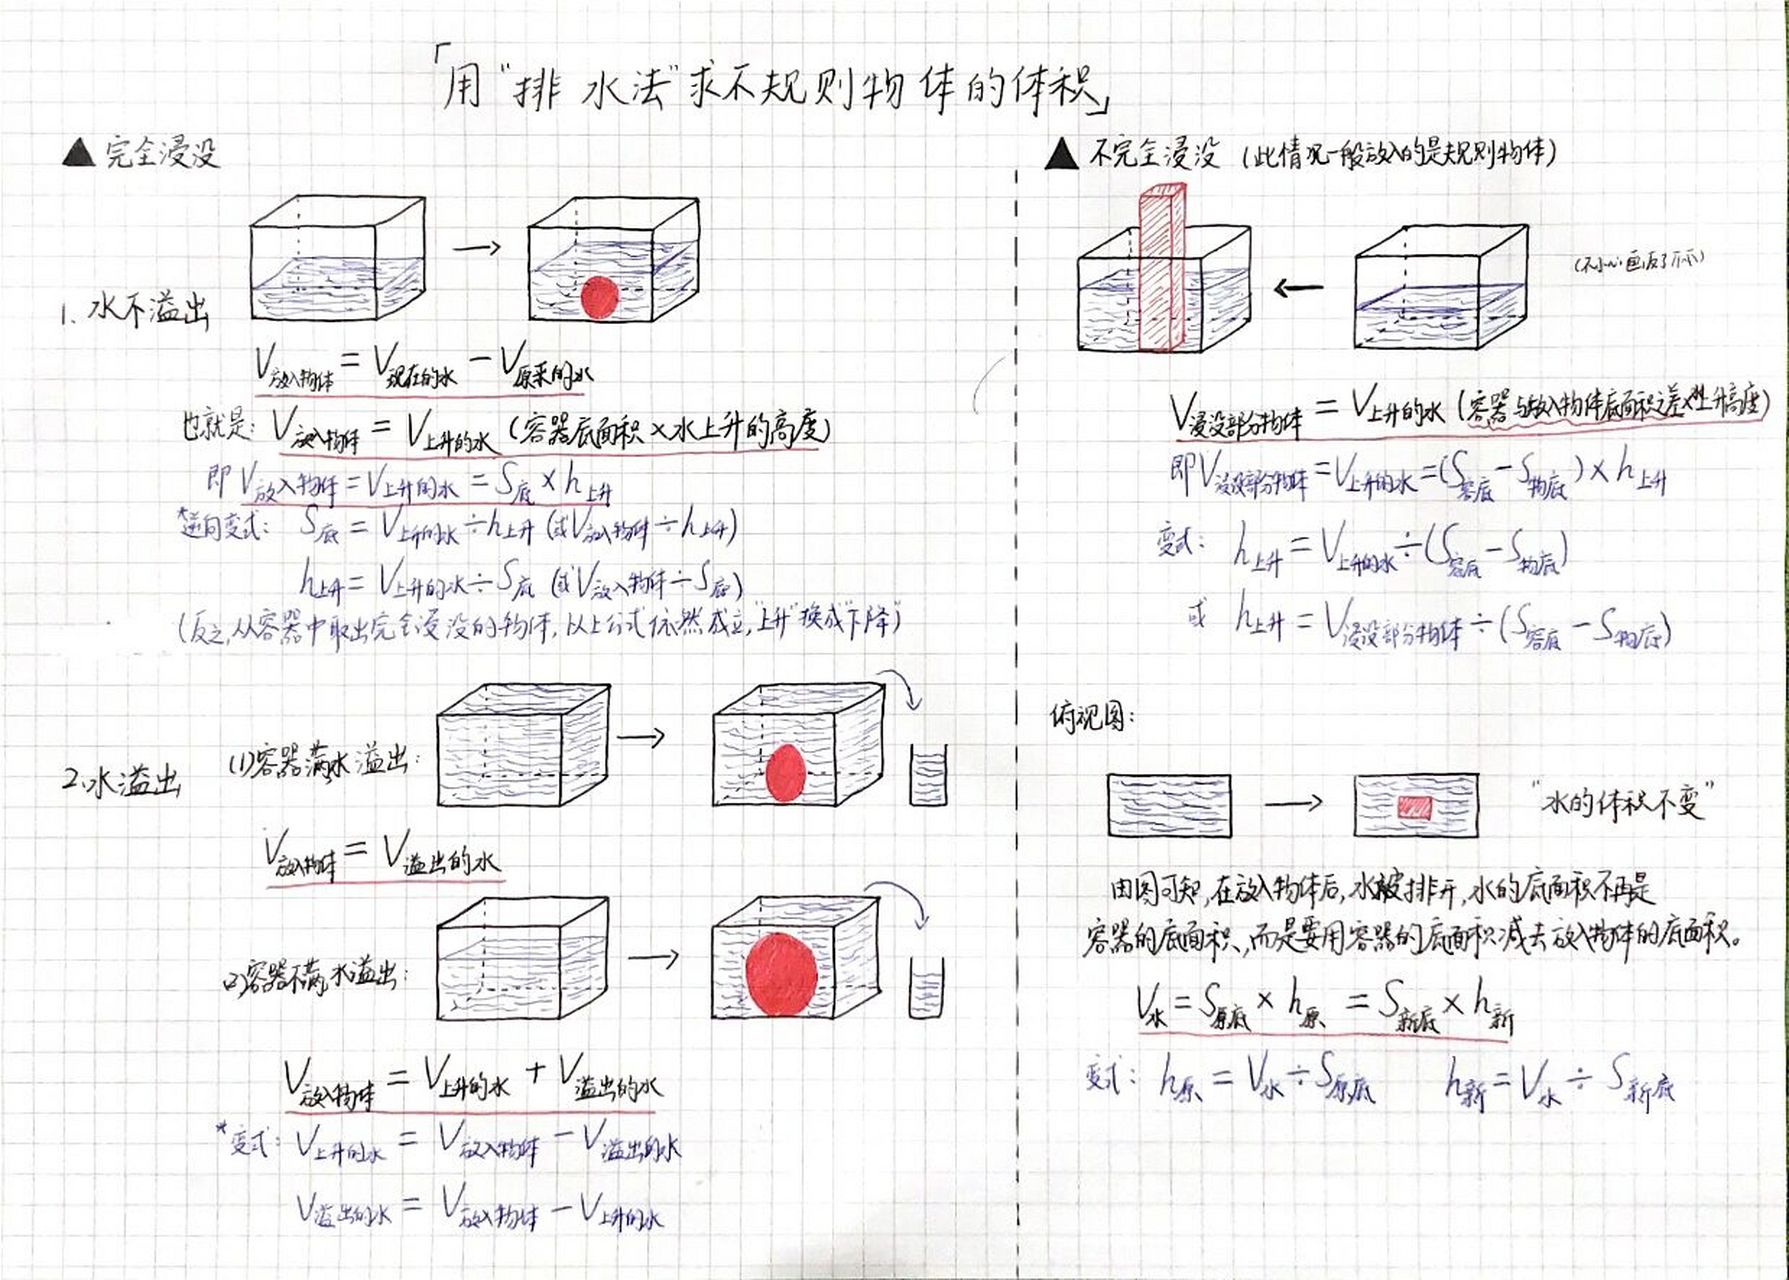 「用“排水法”求不规则物体的体积」
▲ 完全浸没
1. 水不溢出
V放入物体 = V现在的水 - V原来的水
也就是: V放入物体 = V上升的水 (容器底面积×水上升的高度)
即 V放入物体 = V上升的水 = S底 × h上升
*逆向变式: S底 = V上升的水 ÷ h上升 (或V放入物体 ÷ h上升)
h上升 = V上升的水 ÷ S底 (或V放入物体 ÷ S底)
(反之,从容器中取出完全浸没的物体,以上公式依然成立,“上升”换成“下降”)
2. 水溢出
(1)容器满,水溢出:
V放入物体 = V溢出的水
(2)容器不满,水溢出:
V放入物体 = V上升的水 + V溢出的水
*变式: V上升的水 = V放入物体 - V溢出的水
V溢出的水 = V放入物体 - V上升的水
▲ 不完全浸没 (此情况一般放入的是规则物体)
(不小心画反了)
V浸没部分物体 = V上升的水 (容器与放入物体底面积之差×上升高度)
即V浸没部分物体 = V上升的水 = (S容底 - S物底) × h上升
变式: h上升 = V上升的水 ÷ (S容底 - S物底)
或 h上升 = V浸没部分物体 ÷ (S容底 - S物底)
俯视图:
“水的体积不变”
由图可知,在放入物体后,水被排开,水的底面积不再是
容器的底面积,而是要用容器的底面积减去放入物体的底面积。
V水 = S原底 × h原 = S新底 × h新
变式: h原 = V水 ÷ S原底 h新 = V水 ÷ S新底